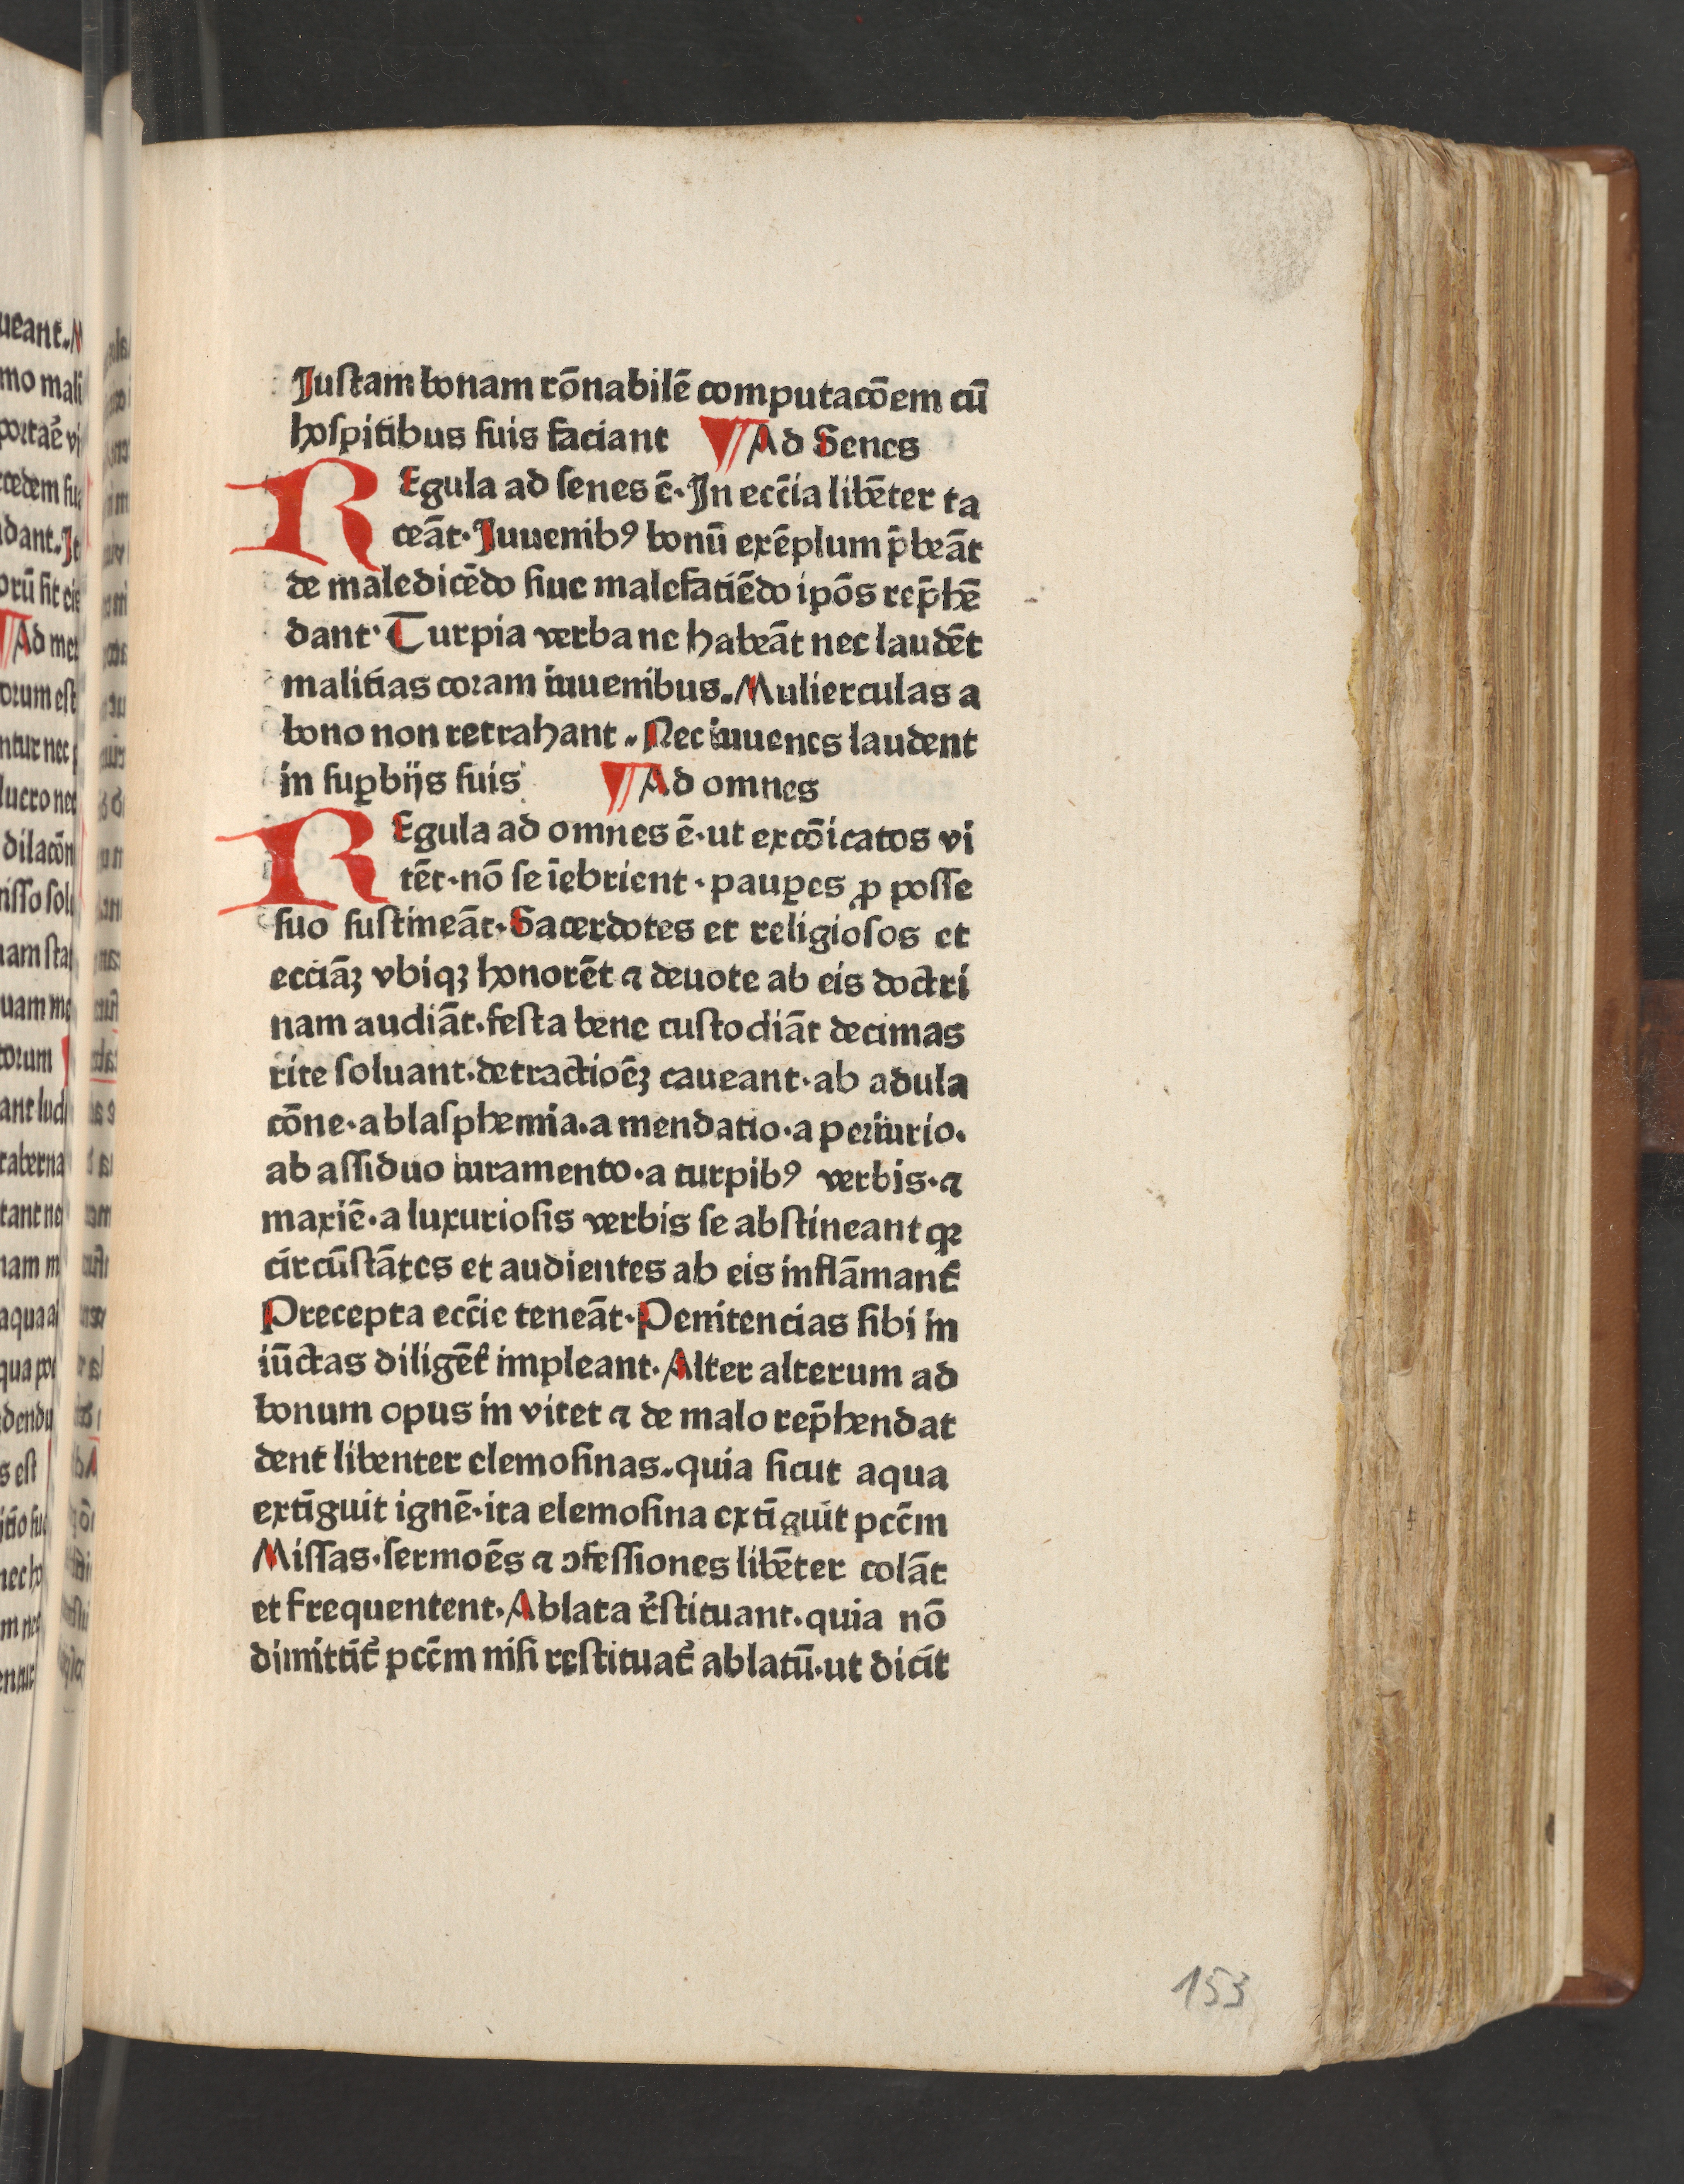 Juſtam bonam rōnabilē computacōem cū
hoſpitibus ſuis faciant ¶ Ad Senes
REgula ad ſenes ē. In eccīa libēter ta
ceāt. Juuenibꝰ bonū exēplum p̄beāt
de maledicēdo ſiue malefaciēdo ipōs rep̄hē
dant. Turpia verba ne habeāt nec laudēt
malitias coꝛam iuuenibus. Mulierculas a
bono non retrahant. Nec iuuenes laudent
in ſuꝑbijs ſuis ¶ Ad omnes
REgula ad omnes ē. ut excōicatos vi
tēt. nō ſe īebrient. pauꝑes ꝓ poſſe
ſuo ſuſtineāt. Sacerdotes et religioſos et
eccīāꝫ vbiqꝫ honorēt ⁊ deuote ab eis doctri
nam audiāt. feſta bene cuſtodiāt decimas
rite ſoluant. detractioēꝫ caueant. ab adula
cōne. a blaſphemia. a mendatio. a periurio.
ab aſſiduo iuramento. a turpibꝰ verbis. ⁊
maxiē. a luxurioſis verbis ſe abſtineant qꝛ
circūſtātes et audientes ab eis inflāmant᷑
Precepta eccīe teneāt. Penitencias ſibi in
iūctas diligēt᷑ impleant. Alter alterum ad
bonum opus in vitet ⁊ de malo rep̄hendat
dent libenter elemoſinas. quia ſicut aqua
extīguit ignē. ita elemoſina extīguit pccm̄
Miſſas. ſermoēs ⁊ ↄfeſſiones libēter colāt
et frequentent. Ablata r̄ſtituant. quia nō
dimittit᷑ pccm̄ niſi reſtituat᷑ ablatū. ut dicit
153